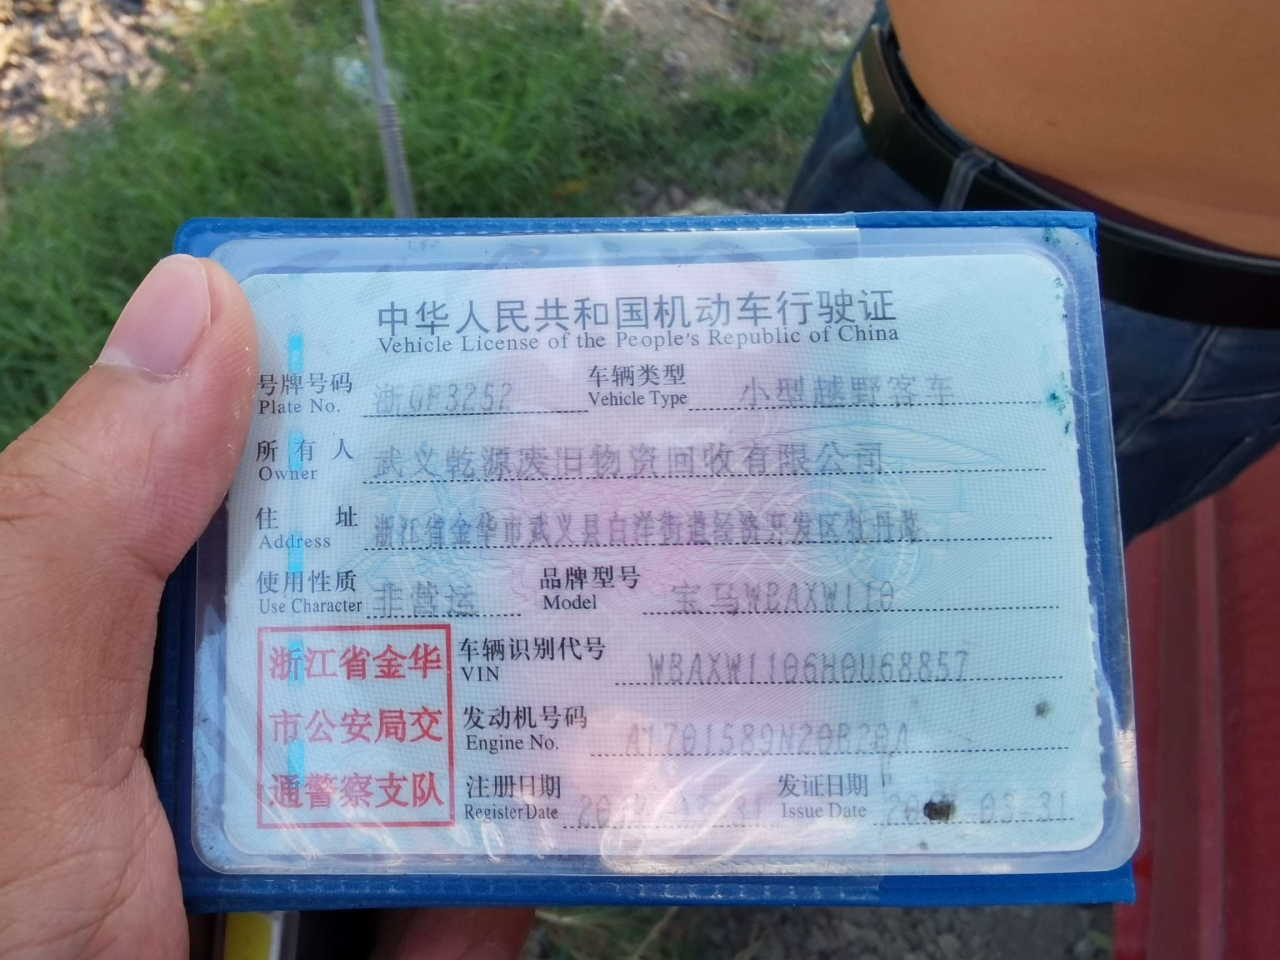 中华人民共和国机动车行驶证
Vehicle License of the People's Republic of China
号牌号码 浙GF3252 车辆类型 小型越野客车
Plate No. Vehicle Type
所有人 武义乾源废旧物资回收有限公司
Owner
住址 浙江省金华市武义县白洋街道经济开发区牡丹路
Address
使用性质 非营运 品牌型号 宝马WBAXW110
Use Character Model
浙江省金华
市公安局交
通警察支队
车辆识别代号 WBAXW1106H0U68857
VIN
发动机号码 A1701589N20B20A
Engine No.
注册日期 2017-03-31 发证日期 03-31
Register Date Issue Date